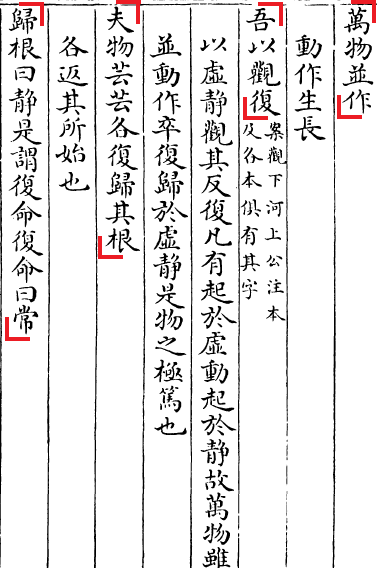 萬物並作
動作生長
吾以觀復案觀下河上公注本
及各本俱有其字
以虛静觀其反復凡有起於虛動起於静故萬物雖
並動作卒復歸於虛静是物之極篤也
夫物芸芸各復歸其根
各返其所始也
歸根曰静是謂復命復命曰常